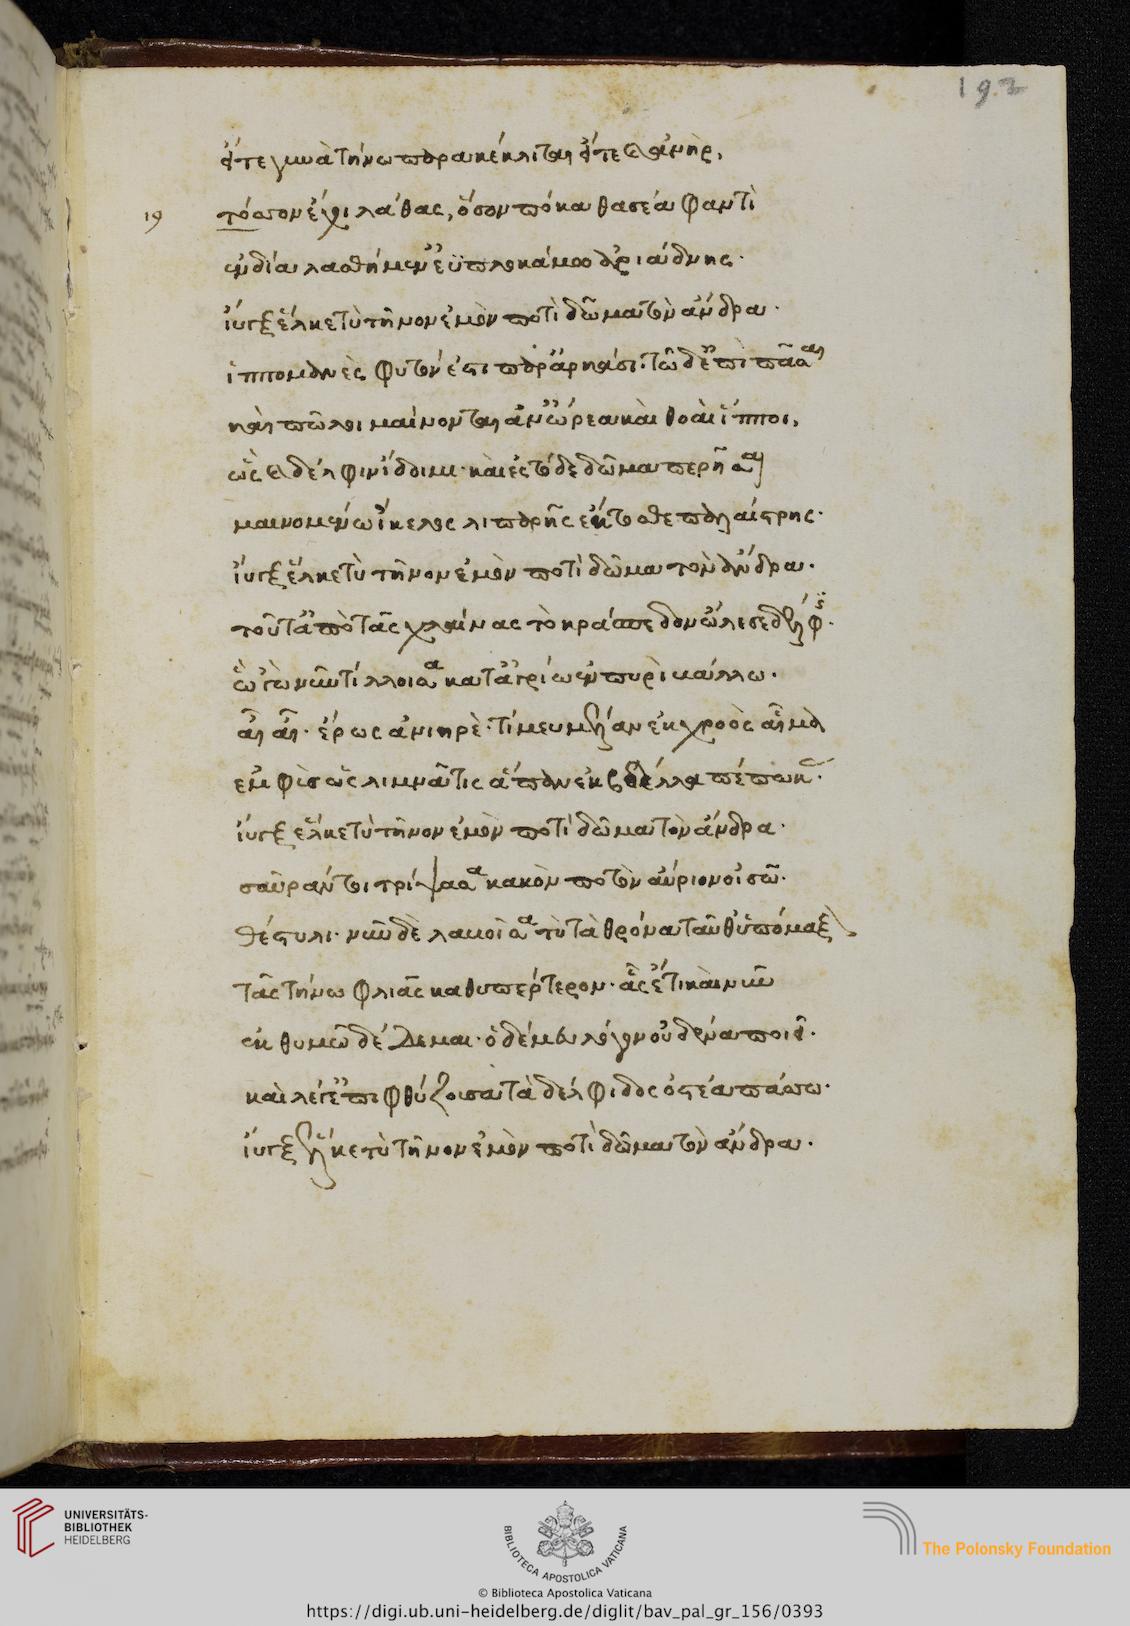 192
εἴτε γυνὰ τήνω παρακέκλιται εἴτε ὁ ἀνήρ,
19 τόσσον ἔχοι λάθας, ὅσον πόκα θασέα φαντὶ
ἐν δία λασθήμεν ἐϋπλοκάμου ἀριάδνης.
ἴυγξ ἕλκε τὺ τῆνον ἐμὸν ποτὶ δῶμα τὸν ἄνδρα.
ἱππομανὲς φυτόν ἐστι παρ' ἀρκάσι. τῶ δ' ἔπι πᾶσαι
καὶ πῶλοι μαίνονται ἀν' ὤρεα καὶ θοαὶ ἵπποι,
ὣς δέλφιν ἴδοιμι. καὶ ἐς τόδε δῶμα περῆσαι
μαινομένω ἴκελος λιπαρῆς ἔκτοσθε παλαίστρης.
ἴυγξ ἕλκε τὺ τῆνον ἐμὸν ποτὶ δῶμα τὸν ἄνδρα.
τοῦτ' ἀπὸ τᾶς χλαίνας τὸ κράσπεδον ὤλεσε δέλφις.
ὣ 'γὼ νῦν τίλλοισα κατ' ἀγρίω ἐν πυρὶ κάλλω.
αἲ αἲ. ἔρως ἀνιηρὲ. τί μευ μέλαν ἐκ χροὸς αἷμα
ἐμφὺς ὡς λιμνᾶτις ἅπαν ἐκ βδέλλα πέπωκας.
ἴυγξ ἕλκε τὺ τῆνον ἐμὸν ποτὶ δῶμα τὸν ἄνδρα.
σαῦραν τοι τρίψασα κακὸν ποτὸν αὔριον οἰσῶ.
θέστυλι. νῦν δὲ λαβοῖσα τὺ τὰ θρόνα ταῦθ' ὑπόμαξον
τᾶς τήνω φλιᾶς καθυπέρτερον. ἇς ἔτι καὶ νῦν
ἐκ θυμῶ δέδεμαι. ὁ δέ μευ λόγον οὐδένα ποιεῖ.
καὶ λέγ' ἐπιφθύζοισα τὰ δέλφιδος ὀστέα πάσσω.
ἴυγξ ἕλκε τὺ τῆνον ἐμὸν ποτὶ δῶμα τὸν ἄνδρα.
UNIVERSITÄTS-
BIBLIOTHEK
HEIDELBERG
BIBLIOTECA APOSTOLICA VATICANA
The Polonsky Foundation
© Biblioteca Apostolica Vaticana
https://digi.ub.uni-heidelberg.de/diglit/bav_pal_gr_156/0393